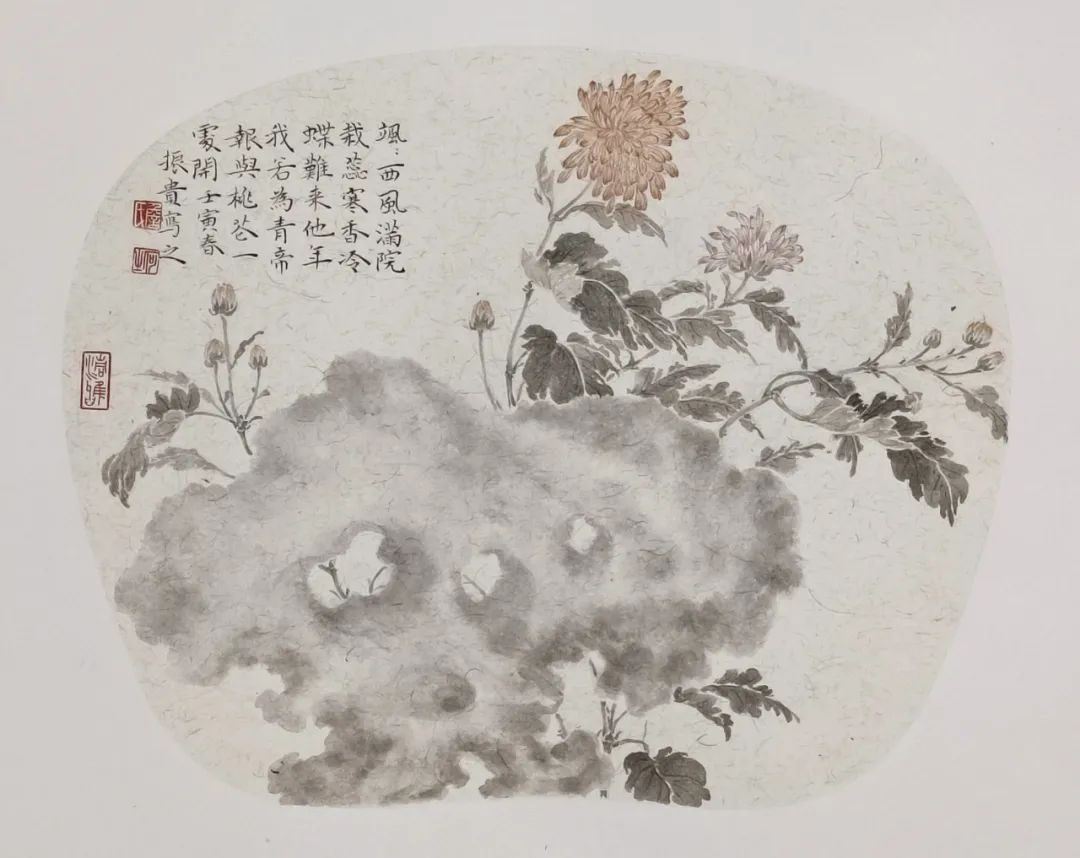 颯〻西風滿院
栽蕊寒香冷
蝶難来他年
我若為青帝
報與桃花一
處開壬寅春
振貴寫之